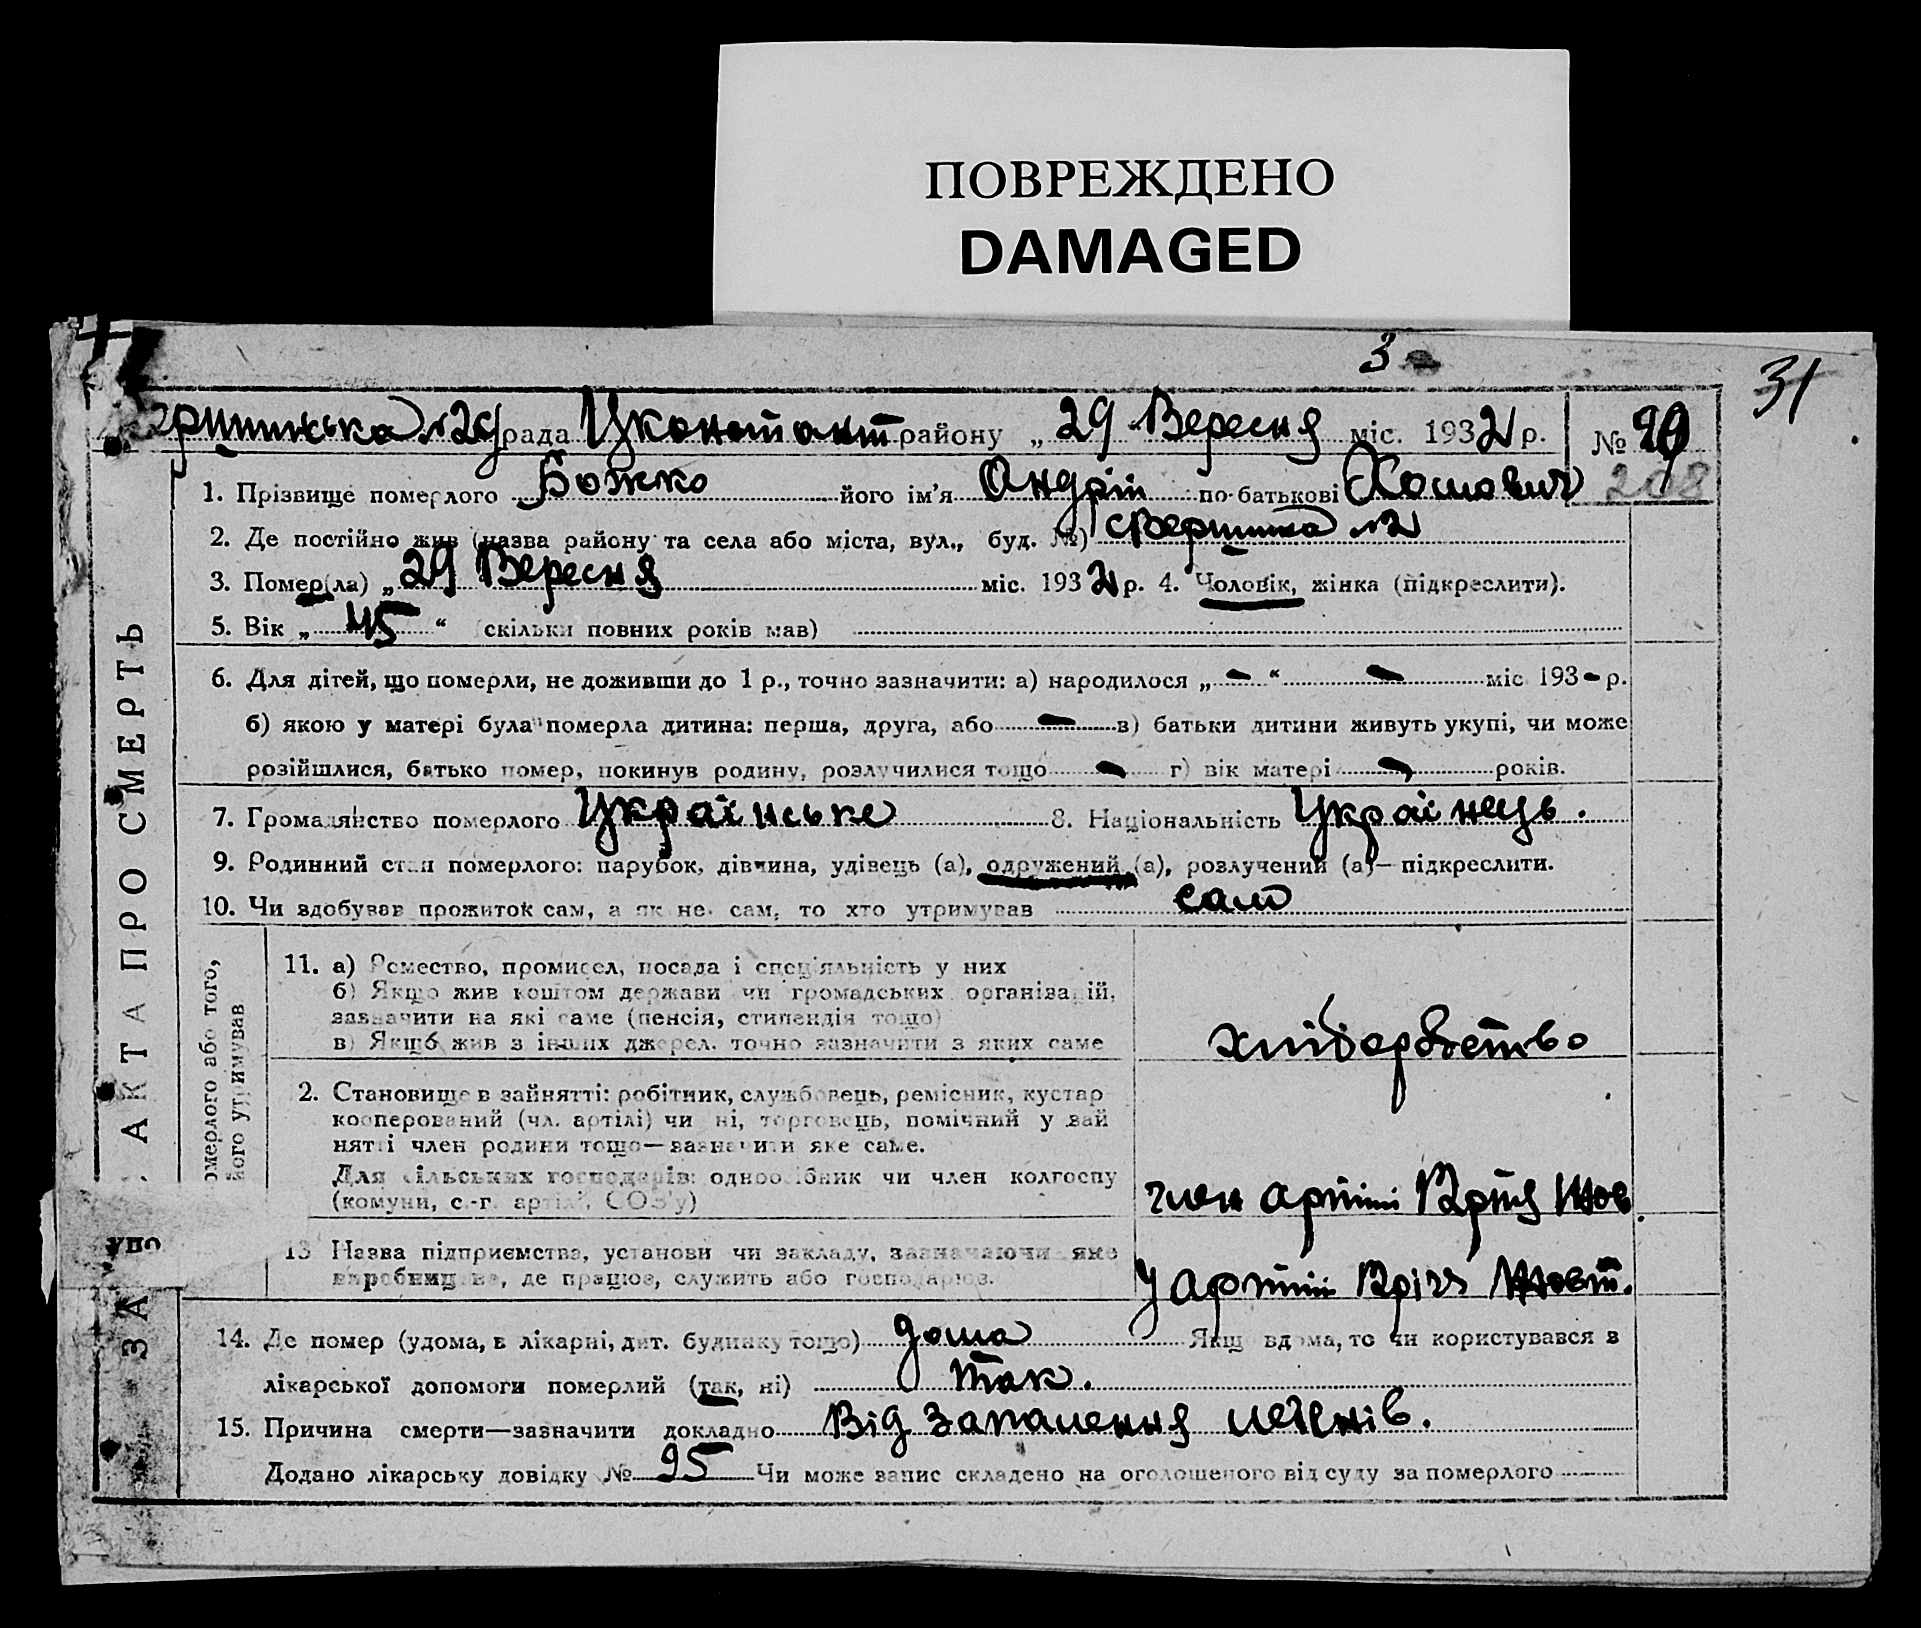 ПОВРЕЖДЕНО
DAMAGED
3
31
рада район у „ 29 Вересня міс. 1932 р. №
208
1. Прізвище померлого Божко його ім'я Андрій по-батькові Хомович
2. Де постійно жив (назва району та села або міста, вул., буд. №) №2
3. Помер(ла) „ 29 Вересня міс. 1932 р. 4. Чоловік, жінка (підкреслити).
5. Вік „ 45 “ (скільки повних років мав)
6. Для дітей, що померли, не доживши до 1 р., точно зазначити: а) народилося „ - “ - міс. 193- р.
б) якою у матері була померла дитина: перша, друга, або - в) батьки дитини живуть укупі, чи може
розійшлися, батько помер, покинув родину, розлучилися тощо - г) вік матері - років.
7. Громадянство померлого Українське 8. Національність Українець.
9. Родинний стан померлого: парубок, дівчина, удівець (а), одружений (а), розлучений (а)—підкреслити.
10. Чи здобував прожиток сам, а як не сам, то хто утримував сам
11. а) Ремество, промисел, посада і спец'яльність у них
б) Якщо жив коштом держави чи громадських організацій,
зазначити на які саме (пенсія, стипендія тощо)
в) Якщо жив з інших джерел, точно зазначити з яких саме
хліборобство
2. Становище в зайнятті: робітник, службовець, ремісник, кустар
кооперований (чл. артілі) чи ні, торговець, помічний у зай
нятті член родини тощо—зазначити яке саме.
Для сільських господарів: одноосібник чи член колгоспу
(комуни, с.-г. артілі, СОЗ'у)
член артілі Жов.
13 Назва підприємства, установи чи закладу, зазначаючи яке
виробництво, де працює, служить або господарює.
У артілі Жовт.
14. Де помер (удома, в лікарні, дит. будинку тощо) дома Якщо вдома, то чи користувався в
лікарської допомоги померлий (так, ні) так.
15. Причина смерти—зазначити докладно Від запалення легенів.
Додано лікарську довідку № 95 Чи може запис складено на оголошеного від суду за померлого
АКТ А ПРО СМЕРТЬ
ЗА
омерлого або того,
його утримував
упо